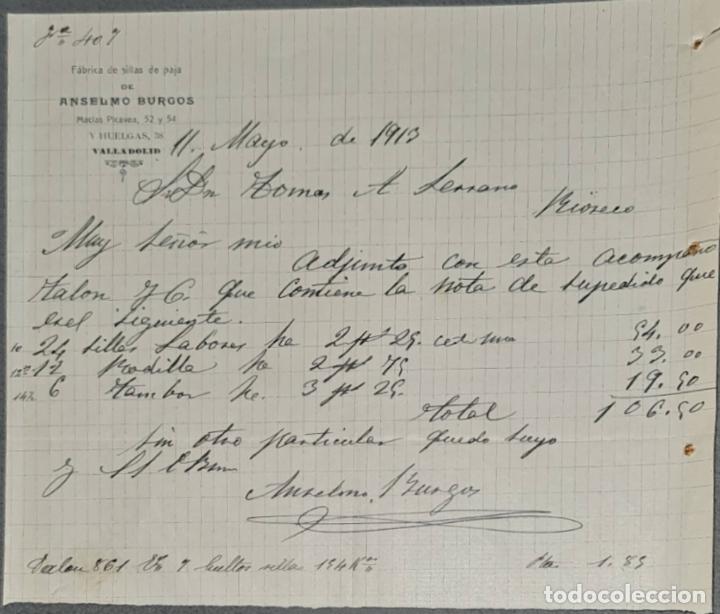 Fábrica de sillas de paja
DE
ANSELMO BURGOS
Macías Picavea, 52 y 54
Y HUELGAS, 38
VALLADOLID
11. Mayo. de 1913
Sr. Dn Tomas A Serrano
Rioseco
Muy Señor mio
Adjunto con esta acompaño
talon F C. que contiene la nota de supedido que
esel siguiente.
24 sillas Labores ha 2 pts 25. 54.00
12 Rodilla ha 2 pts 75 33.00
6 tambor ha. 3 pts 25. 19.50
total 106.50
sin otro particular quedo suyo
y
Anselmo Burgos
Talon 861 9 bultos silla 154 K 1.85
todocoleccion